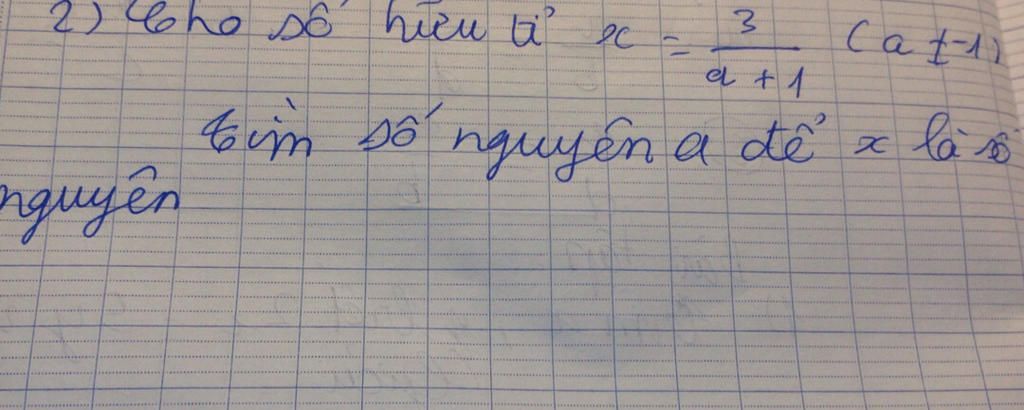 2) Cho số hữu tỉ x = 3/(a + 1) (a ≠ -1)
tìm số nguyên a để x là số
nguyên